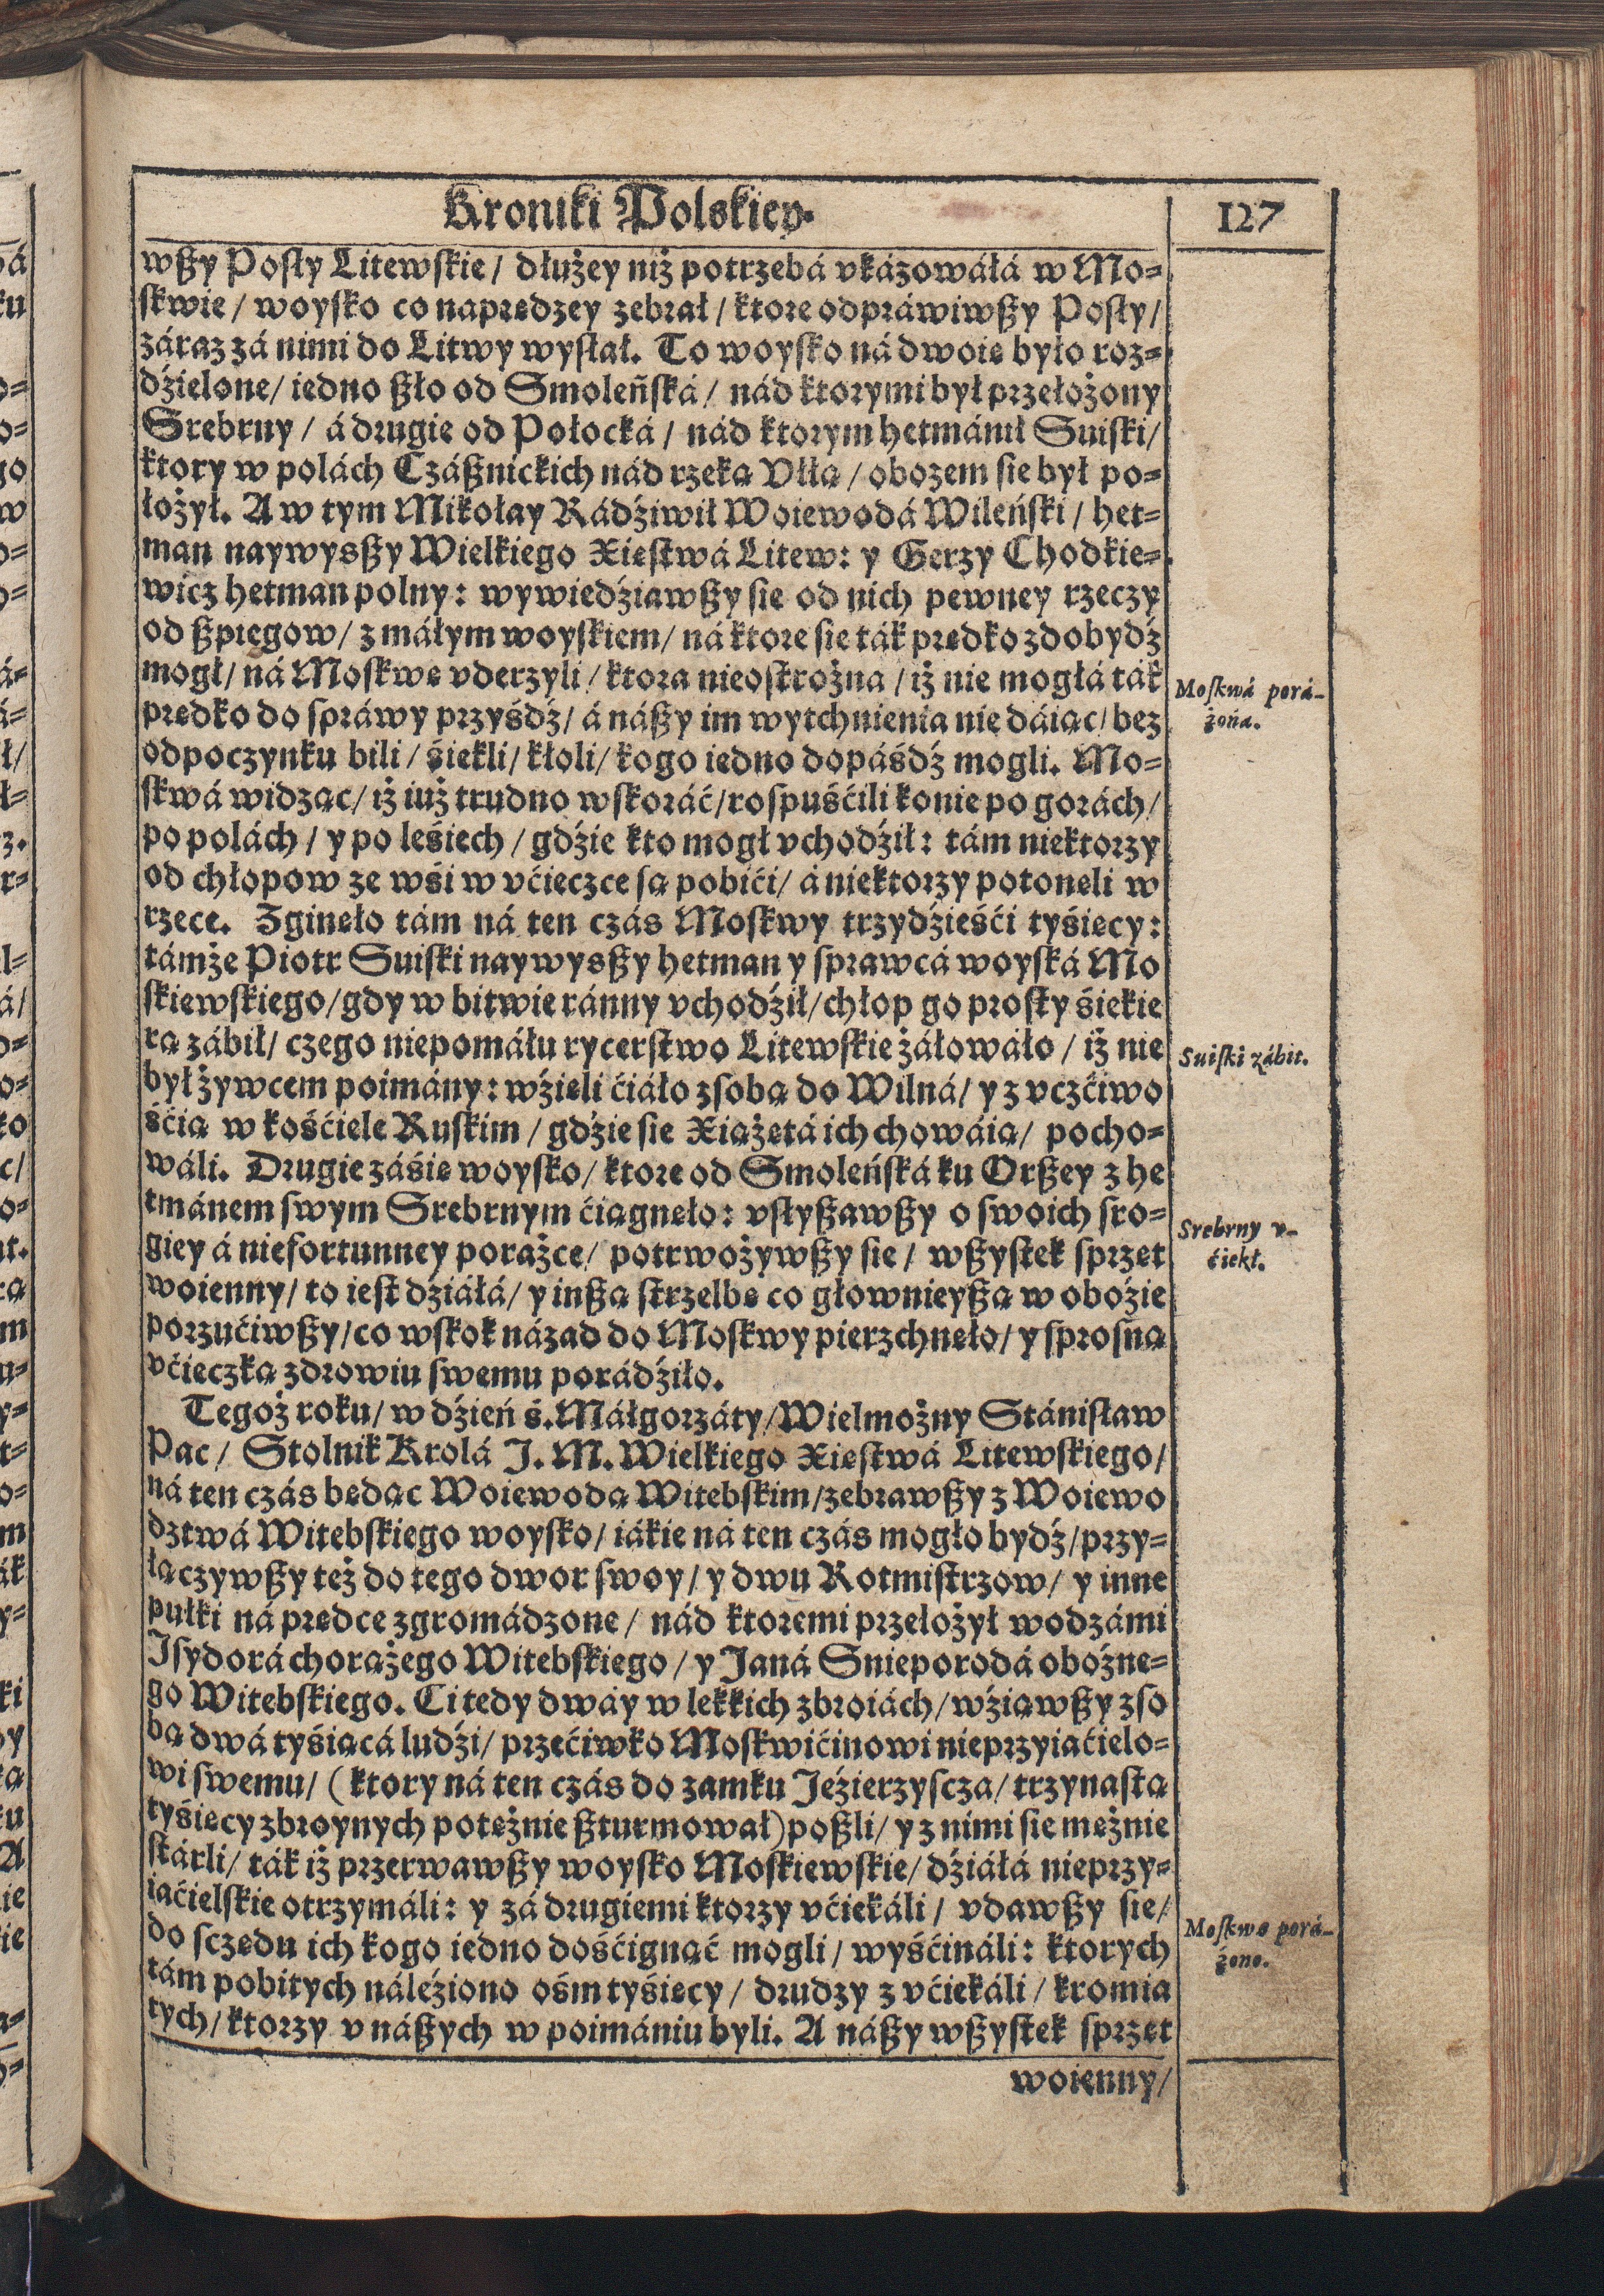 Kroniki Polskiey.
127
wßy Posły Litewskie / dłużey niż potrzebá vkázowáłá w Mo=
skwie / woysko co naprędzey zebrał / ktore odpráwiwßy Posły /
záraz zá nimi do Litwy wysłał. To woysko ná dwoie było roz=
dźielone / iedno ßło od Smoleńská / nád ktorymi był przełożony
Srebrny / á drugie od Połocká / nád ktorym hetmánił Suiski /
ktory w polách Czáßnickich nád rzeką Vłłą / obozem sie był po=
łożył. A w tym Mikołay Rádźiwił Woiewodá Wileński / het=
man naywysßy Wielkiego Xięstwá Litew: y Gerzy Chodkie=
wicz hetman polny: wywiedźiawßy sie od nich pewney rzeczy
od ßpiegow / z máłym woyskiem / ná ktore sie ták prędko zdobydź
mogł / ná Moskwę vderzyli / ktora nieostrożna / iż nie mogłá ták
prędko do spráwy przyśdź / á náßy im wytchnienia nie dáiąc / bez
odpoczynku bili / śiekli / kłoli / kogo iedno dopáśdź mogli. Mo=
skwá widząc / iż iuż trudno wskoráć / rospuśćili konie po gorách /
po polách / y po leśiech / gdźie kto mogł vchodźił: tám niektorzy
od chłopow ze wśi w vćieczce są pobići / á niektorzy potonęli w
rzece. Zginęło tám ná ten czás Moskwy trzydźieśći tyśięcy:
támże Piotr Suiski naywysßy hetman y sprawcá woyská Mo
skiewskiego / gdy w bitwie ránny vchodźił / chłop go prosty śiekie
rą zábił / czego niepomáłu rycerstwo Litewskie żáłowáło / iż nie
był żywcem poimány: wźięli ćiáło z sobą do Wilná / y z vczćiwo
śćią w kośćiele Ruskim / gdźie sie Xiążętá ich chowáią / pocho=
wáli. Drugie záśię woysko / ktore od Smoleńská ku Orßey z he
tmánem swym Srebrnym ćiągnęło: vsłyßawßy o swoich sro=
giey á niefortunney porażce / potrwożywßy sie / wßystek sprzęt
woienny / to iest dźiáłá / y inßą strzelbę co głownieyßą w oboźie
porzućiwßy / co wskok názad do Moskwy pierzchnęło / y sprosną
vćieczką zdrowiu swemu porádźiło.
Tegoż roku / w dźień ś. Máłgorzáty / Wielmożny Stánisław
Pac / Stolnik Krolá J. M. Wielkiego Xięstwá Litewskiego /
ná ten czás będąc Woiewodą Witebskim / zebrawßy z Woiewo
dztwá Witebskiego woysko / iákie ná ten czás mogło bydź / przy=
łączywßy też do tego dwor swoy / y dwu Rotmistrzow / y inne
pułki ná prędce zgromádzone / nád ktoremi przełożył wodzámi
Jsydorá chorążego Witebskiego / y Janá Snieporodá oboźne=
go Witebskiego. Ci tedy dway w lekkich zbroiách / wźiąwßy z so
bą dwá tyśiącá ludźi / przećiwko Moskwićinowi nieprzyiaćielo=
wi swemu / (ktory ná ten czás do zamku Jeźierzyscza / trzynastą
tyśięcy zbroynych potężnie ßturmował) poßli / y z nimi sie mężnie
stárli / ták iż przerwawßy woysko Moskiewskie / dźiáłá nieprzy=
iaćielskie otrzymáli: y zá drugiemi ktorzy vćiekáli / vdawßy sie /
do sczędu ich kogo iedno dośćignąć mogli / wyśćináli: ktorych
tám pobitych náleźiono ośm tyśięcy / drudzy z vćiekáli / kromia
tych / ktorzy v náßych w poimániu byli. A náßy wßystek sprzęt
woienny /
Moskwá porá-
żona.
Suiski zábit.
Srebrny v-
ćiekł.
Moskwę porá-
żono.